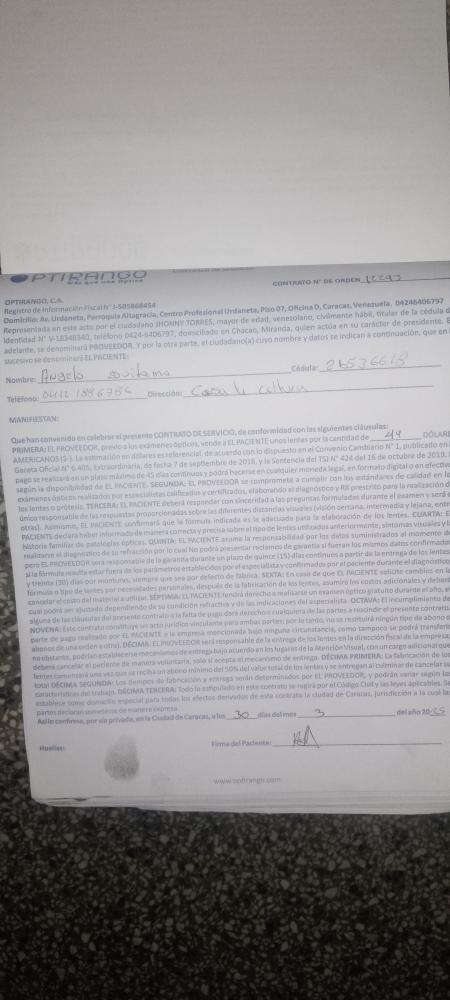 OPTIRANGO
Más que una Óptica
CONTRATO N° DE ORDEN 12293
OPTIRANGO, C.A.
Registro de Información Fiscal N° J-505868454
Domicilio: Av. Urdaneta, Parroquia Altagracia, Centro Profesional Urdaneta, Piso 07, Oficina D, Caracas, Venezuela. 04246406797
Representada en este acto por el ciudadano JHONNY TORRES, mayor de edad, venezolano, civilmente hábil, titular de la cédula d
Identidad N° V-18348340, teléfono 0424-6406797, domiciliado en Chacao, Miranda, quien actúa en su carácter de presidente. E
adelante, se denominará PROVEEDOR. Y por la otra parte, el ciudadano(a) cuyo nombre y datos se indican a continuación, que en l
sucesivo se denominará EL PACIENTE:
Nombre: Angelo Cédula:
Teléfono: Dirección: Casa de cultura
MANIFIESTAN:
Que han convenido en celebrar el presente CONTRATO DE SERVICIO, de conformidad con las siguientes cláusulas:
PRIMERA: EL PROVEEDOR, previo a los exámenes ópticos, vende a EL PACIENTE unos lentes por la cantidad de 44 DÓLARE
AMERICANOS ($·). La estimación en dólares es referencial, de acuerdo con lo dispuesto en el Convenio Cambiario N° 1, publicado en
Gaceta Oficial N° 6.405, Extraordinaria, de fecha 7 de septiembre de 2018, y la Sentencia del TSJ N° 424 del 16 de octubre de 2019.
pago se realizará en un plazo máximo de 45 días continuos y podrá hacerse en cualquier moneda legal, en formato digital o en efectiv
según la disponibilidad de EL PACIENTE. SEGUNDA: EL PROVEEDOR se compromete a cumplir con los estándares de calidad en lo
exámenes ópticos realizados por especialistas calificados y certificados, elaborando el diagnóstico y RX prescrito para la realización d
los lentes o prótesis. TERCERA: EL PACIENTE deberá responder con sinceridad a las preguntas formuladas durante el examen y será e
único responsable de las respuestas proporcionadas sobre las diferentes distancias visuales (visión cercana, intermedia y lejana, entre
otras). Asimismo, EL PACIENTE confirmará que la fórmula indicada es la adecuada para la elaboración de los lentes. CUARTA: E
PACIENTE declara haber informado de manera correcta y precisa sobre el tipo de lentes utilizados anteriormente, síntomas visuales y l
historia familiar de patologías ópticas. QUINTA: EL PACIENTE asume la responsabilidad por los datos suministrados al momento de
realizarse el diagnóstico de su refracción por lo cual No podrá presentar reclamos de garantía si fueran los mismos datos confirmado
pero EL PROVEEDOR será responsable de la garantía durante un plazo de quince (15) días continuos a partir de la entrega de los lentes
si la fórmula resulta estar fuera de los parámetros establecidos por el especialista y confirmados por el paciente durante el diagnóstico
y treinta (30) días por monturas, siempre que sea por defecto de fábrica. SEXTA: En caso de que EL PACIENTE solicite cambios en la
fórmula o tipo de lentes por necesidades personales, después de la fabricación de los lentes, asumirá los costos adicionales y deberá
cancelar el costo del material a utilizar. SÉPTIMA: EL PACIENTE tendrá derecho a realizarse un examen óptico gratuito durante el año, e
cual podrá ser ajustado dependiendo de su condición refractiva y de las indicaciones del especialista. OCTAVA: El incumplimiento de
alguna de las cláusulas del presente contrato o la falta de pago dará derecho a cualquiera de las partes a rescindir el presente contrato.
NOVENA: Este contrato constituye un acto jurídico vinculante para ambas partes; por lo tanto, no se restituirá ningún tipo de abono o
parte de pago realizado por EL PACIENTE a la empresa mencionada bajo ninguna circunstancia, como tampoco se podrá transferir
abonos de una orden a otra). DÉCIMA: EL PROVEEDOR será responsable de la entrega de los lentes en la dirección fiscal de la empresa;
no obstante, podrían establecerse mecanismos de entrega bajo acuerdo en los lugares de la Atención Visual, con un cargo adicional que
deberá cancelar el paciente de manera voluntaria, solo si acepta el mecanismo de entrega. DÉCIMA PRIMERA: La fabricación de los
lentes comenzará una vez que se reciba un abono mínimo del 50% del valor total de los lentes y se entregan al culminar de cancelar su
total DÉCIMA SEGUNDA: Los tiempos de fabricación y entrega serán determinados por EL PROVEEDOR, y podrán variar según las
características del trabajo. DÉCIMA TERCERA: Todo lo estipulado en este contrato se regirá por el Código Civil y las leyes aplicables. Se
establece como domicilio especial para todos los efectos derivados de este contrato la ciudad de Caracas, jurisdicción a la cual las
partes declaran someterse de manera expresa.
Así lo confirmo, por vía privada, en la Ciudad de Caracas, a los 30 días del mes 3 del año 2025
Huellas: Firma del Paciente:
www.optirango.com